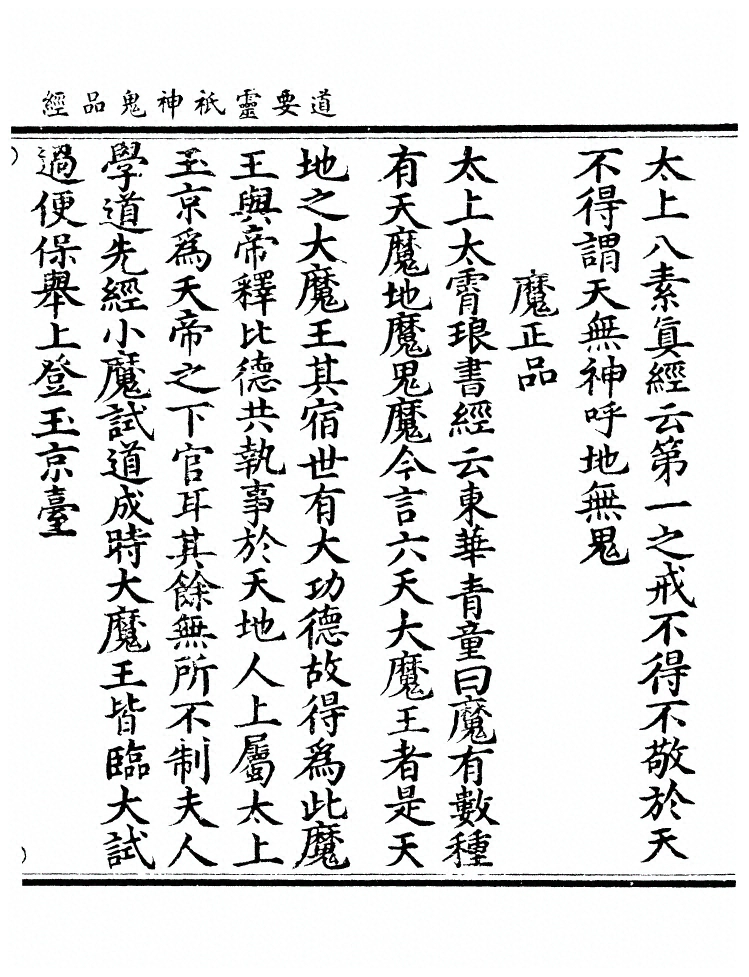 道要靈祇神鬼品經
太上八素眞經云第一之戒不得不敬於天
不得謂天無神呼地無鬼
魔正品
太上太霄琅書經云東華青童曰魔有數種
有天魔地魔鬼魔今言六天大魔王者是天
地之大魔王其宿世有大功德故得爲此魔
王與帝釋比德共執事於天地人上屬太上
玉京爲天帝之下官耳其餘無所不制夫人
學道先經小魔試道成時大魔王皆臨大試
過便保舉上登玉京臺